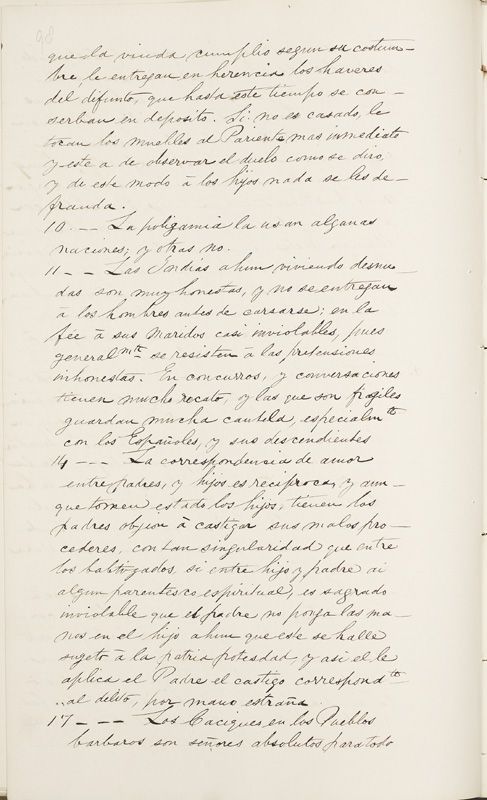 98
que la viuda cumplio segun su costum-
bre le entregan en herencia los haveres
del difunto, que hasta este tiempo se con-
serban en deposito. Si no es casado, le
tocan los muebles al Pariente mas inmediato
y este a de observar el duelo como se diro,
y de este modo à los hijos nada se les de-
frauda.
10. -- La poligamia la usan algunas
naciones; y otras no.
11 - - Las Indias ahun viviendo desnu-
das son muy honestas, y no se entregan
à los hombres antes de carsarse; en la
fée à sus maridos casi inviolables, pues
generalmte se resisten à las pretensiones
inhonestas. En concursos, y conversaciones
tienen mucho recato, y las que son fragiles
guardan mucha cautela, especialmte
con los Españoles, y sus descendientes
14 --- La correspondencia de amor
entre padres, y hijos es reciproca, y aun-
que tomen estado los hijos, tienen los
padres à castigar sus malos pro-
cederes, con tan singularidad que entre
los babtizados, si entre hijo y padre ai
algun parentesco espiritual, es sagrado
inviolable que el padre no ponga las ma-
nos en el hijo ahun que este se halle
sugeto à la patria potesdad, y asi el le
aplica el Padre el castigo correspondte
..al delito, por mano estraña.
17 - -- Los Caciques en los Pueblos
barbaros son señores absolutos para todo